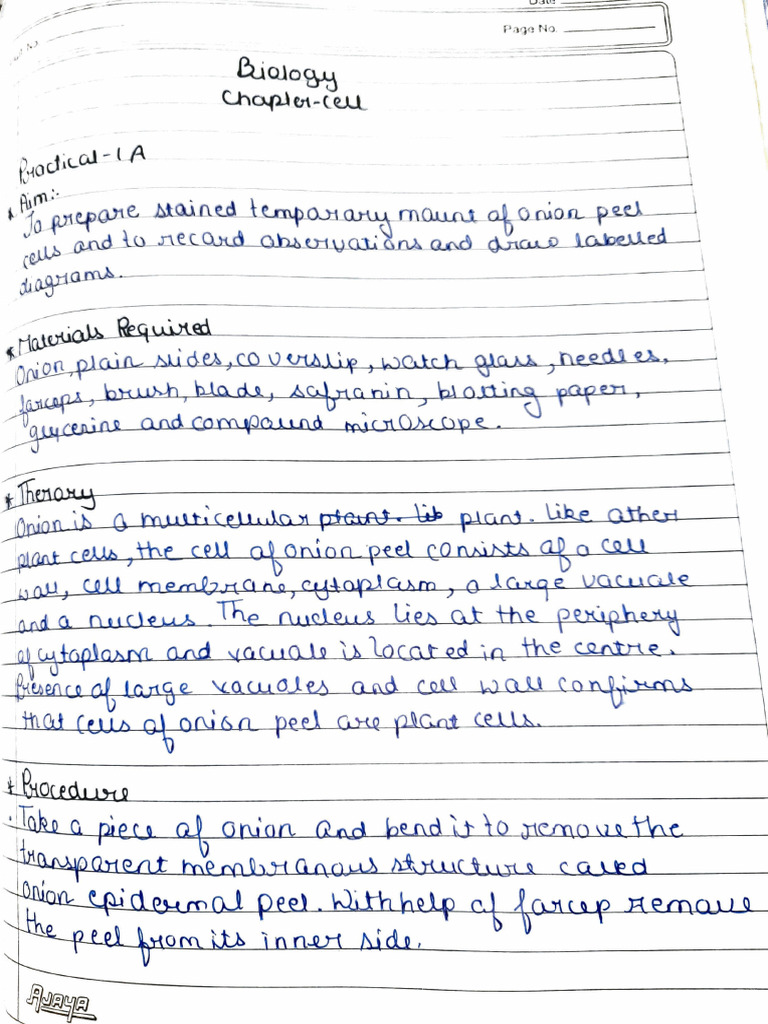 Date
Page No.
Biology
Chapter-cell
Practical-1A
* Aim:-
To prepare stained temparary mount of onion peel
cells and to record observations and draw labelled
diagrams.
* Materials Required
Onion, plain slides, coverslip, watch glass, needles,
forceps, brush, blade, safranin, blotting paper,
glycerine and compound microscope.
* Therary
Onion is a multicellular plant. lib plant. like other
plant cells, the cell of onion peel consists of a cell
wall, cell membrane, cytoplasm, a large vacuole
and a nucleus. The nucleus lies at the periphery
of cytoplasm and vacuole is located in the centre.
Presence of large vacuoles and cell wall confirms
that cells of onion peel are plant cells.
* Procedure
. Take a piece of onion and bend it to remove the
transparent membranous structure called
onion epidermal peel. With help of farcep remove
the peel from its inner side.
AJAYA